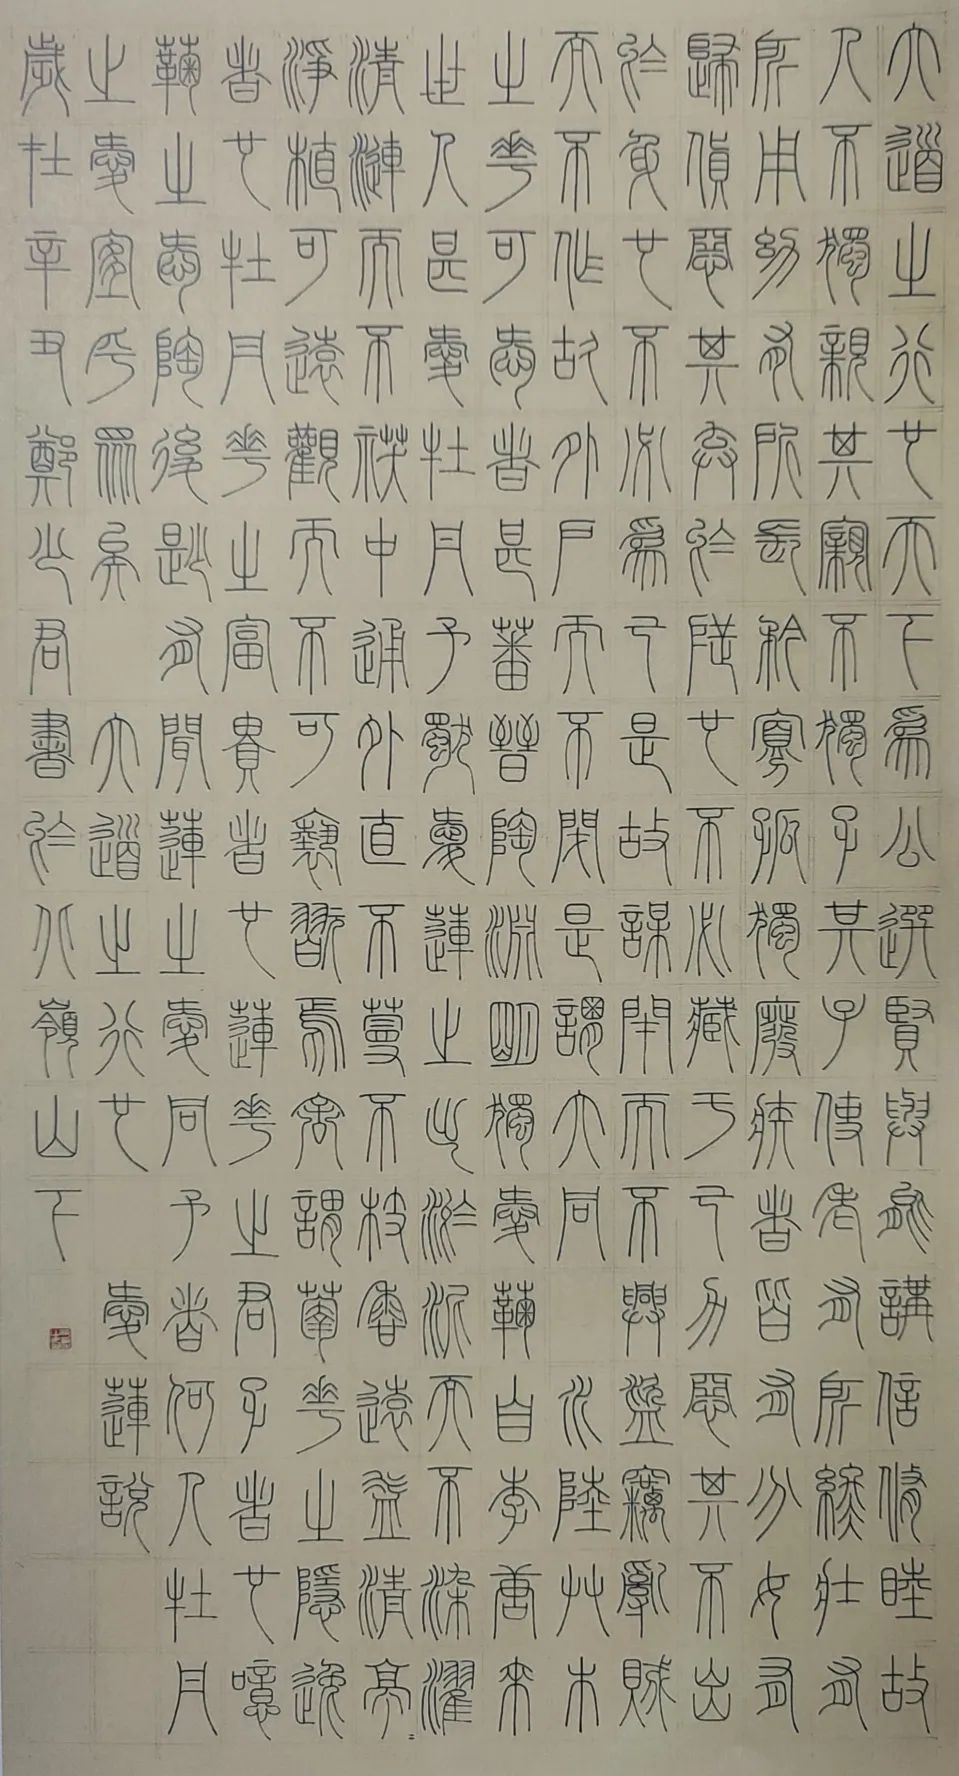 大道之行也天下為公選賢與能講信修睦故
人不獨親其親不獨子其子使老有所終壯有
所用幼有所長矜寡孤獨廢疾者皆有分女有
歸貨惡其棄於地也不必藏于己力惡其不出
於身也不必為己是故謀閉而不興盜竊亂賊
而不作故外戶而不閉是謂大同 水陸艸木
之花可愛者甚蕃晉陶淵明獨愛菊自李唐來
世人甚愛牡丹予獨愛蓮之出淤泥而不染濯
清漣而不妖中通外直不蔓不枝香遠益清亭=
淨植可遠觀而不可褻翫焉予謂菊花之隱逸
者也牡丹花之富貴者也蓮花之君子者也噫
菊之愛陶後鮮有聞蓮之愛同予者何人牡丹
之愛宜乎眾矣 大道之行也 愛蓮說
歲在辛丑鄭少君書於八嶺山下